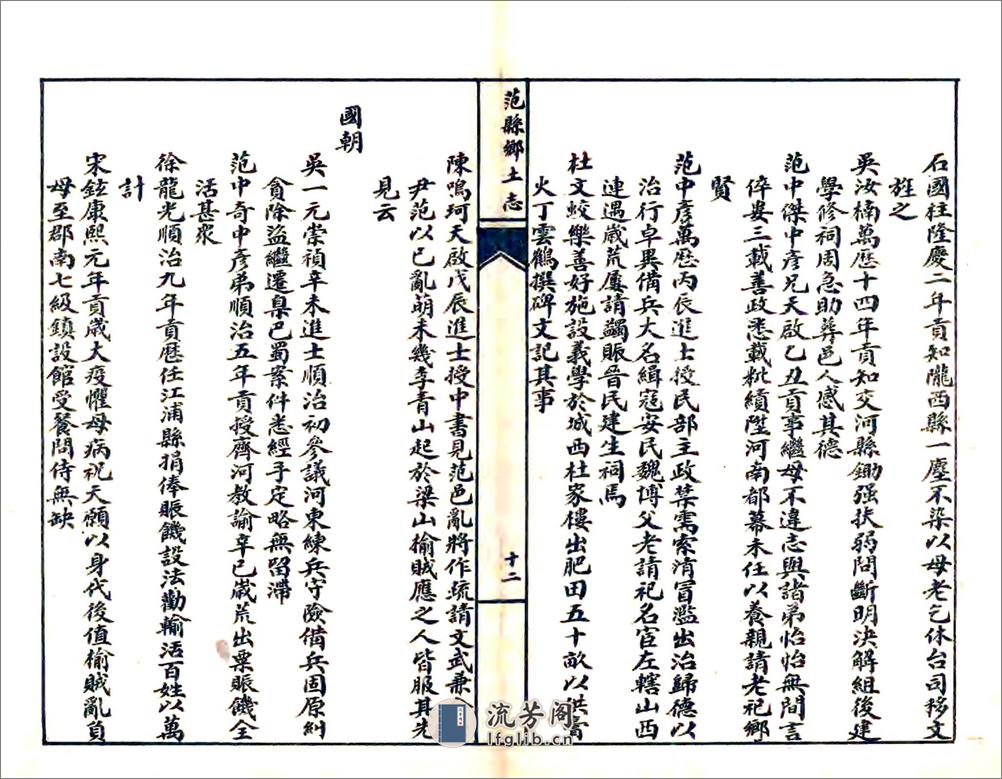 石國柱隆慶二年貢知隴西縣一塵不染以母老乞休台司移文
旌之
吳汝楠萬歷十四年貢知交河縣鋤强扶弱問斷明決解組後建
學修祠周急助葬邑人感其德
范中傑中彥兄天啟乙丑貢事繼母不違志與諸弟怡怡無間言
倅婁三載善政悉載枇績陞河南都幕未任以養親請老祀鄉
賢
范中彥萬歷丙辰進士授民部主政禁需索清冒濫出治歸德以
治行卓異備兵大名緝寇安民魏博父老請祀名宦左轄山西
連遇歲荒屢請蠲賑晉民建生祠焉
杜文蛟樂善好施設義學於城西杜家樓出肥田五十畝以供膏
火丁雲鶴撰碑文記其事
范縣鄉土志
十二
陳鳴珂天啟戊辰進士授中書見范邑亂將作疏請文武兼
尹范以已亂萌未幾李青山起於梁山榆賊應之人皆服其先
見云
國朝
吳一元崇禎辛未進士順治初參議河東練兵守險備兵固原糾
貪除盜繼遷臬巴蜀案件悉經手定略無留滯
范中奇中彥弟順治五年貢授齊河教諭辛巳歲荒出粟賑饑全
活甚眾
徐龍光順治九年貢歷任江浦縣捐俸賑饑設法勸輸活百姓以萬
計
宋鉉康熙元年貢歲大疫懼母病祝天願以身代後值榆賊亂負
母至郡南七級鎮設館受餐問侍無缺
流芳閣
lfglib.cn